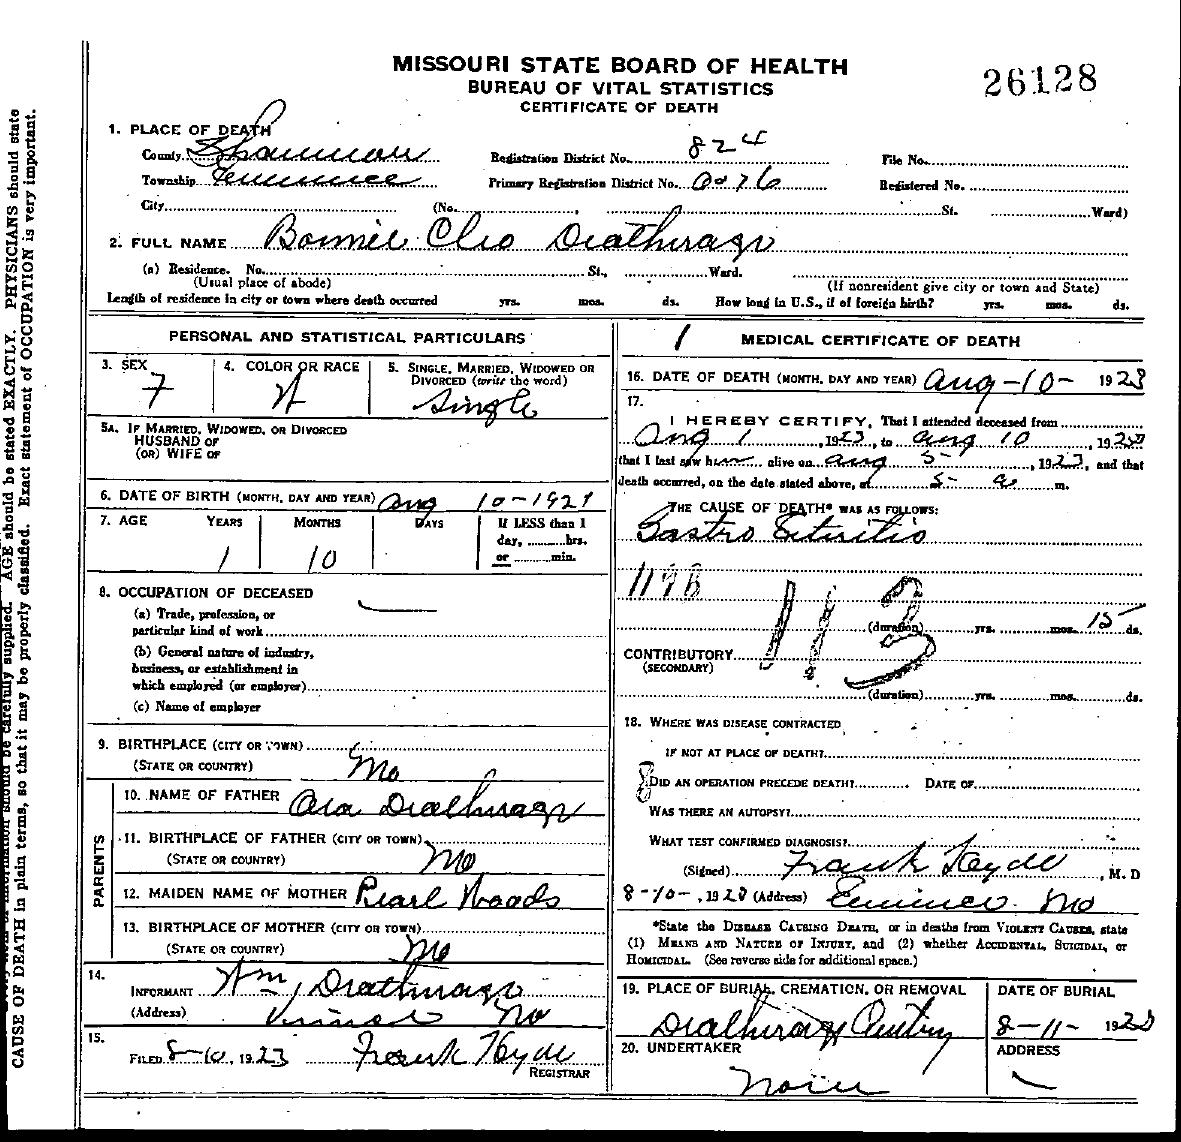 MISSOURI STATE BOARD OF HEALTH
BUREAU OF VITAL STATISTICS
CERTIFICATE OF DEATH
26128
1. PLACE OF DEATH
County Shannon Registration District No. 824 File No.
Township Eminence Primary Registration District No. Registered No.
City (No. , St. Ward)
2. FULL NAME Bonnie Cleo Deatherage
(a) Residence. No. St., Ward.
(Usual place of abode) (If nonresident give city or town and State)
Length of residence in city or town where death occurred yrs. mos. ds. How long in U.S., if of foreign birth? yrs. mos. ds.
PERSONAL AND STATISTICAL PARTICULARS
3. SEX 4. COLOR OR RACE 5. SINGLE, MARRIED, WIDOWED OR
DIVORCED (write the word)
F W Single
5A. IF MARRIED, WIDOWED, OR DIVORCED
HUSBAND OF
(OR) WIFE OF
6. DATE OF BIRTH (MONTH, DAY AND YEAR) Aug 10-1921
7. AGE YEARS MONTHS DAYS If LESS than 1
day, hrs.
or min.
1 10
8. OCCUPATION OF DECEASED
(a) Trade, profession, or
particular kind of work
(b) General nature of industry,
business, or establishment in
which employed (or employer)
(c) Name of employer
9. BIRTHPLACE (CITY OR TOWN)
(STATE OR COUNTRY) Mo
PARENTS
10. NAME OF FATHER Ora Deatherage
11. BIRTHPLACE OF FATHER (CITY OR TOWN)
(STATE OR COUNTRY) Mo
12. MAIDEN NAME OF MOTHER Pearl Woods
13. BIRTHPLACE OF MOTHER (CITY OR TOWN)
(STATE OR COUNTRY) Mo
14.
INFORMANT Wm, Deatherage
(Address) Mo
15.
FILED 8-10, 1923 Frank Hyde
REGISTRAR
1 MEDICAL CERTIFICATE OF DEATH
16. DATE OF DEATH (MONTH, DAY AND YEAR) Aug-10- 1923
17.
I HEREBY CERTIFY, That I attended deceased from
Aug 1, 1923, to Aug 10, 1923
that I last saw her alive on Aug 5-, 1923, and that
death occurred, on the date stated above, at 5- a m.
THE CAUSE OF DEATH* WAS AS FOLLOWS:
Gastro Enteritis
119B
113
(duration) yrs. mos. 15 ds.
CONTRIBUTORY
(SECONDARY)
(duration) yrs. mos. ds.
18. WHERE WAS DISEASE CONTRACTED
IF NOT AT PLACE OF DEATH?
DID AN OPERATION PRECEDE DEATH? DATE OF
WAS THERE AN AUTOPSY?
WHAT TEST CONFIRMED DIAGNOSIS?
(Signed) Frank Hyde, M. D
8-10-, 1923 (Address) Eminence Mo
*State the DISEASE CAUSING DEATH, or in deaths from VIOLENT CAUSES, state
(1) MEANS AND NATURE OF INJURY, and (2) whether ACCIDENTAL, SUICIDAL, or
HOMICIDAL. (See reverse side for additional space.)
19. PLACE OF BURIAL, CREMATION, OR REMOVAL DATE OF BURIAL
Deatherage Cemetery 8-11- 1923
20. UNDERTAKER ADDRESS
None
AGE should be stated EXACTLY. PHYSICIANS should state
CAUSE OF DEATH in plain terms, so that it may be properly classified. Exact statement of OCCUPATION is very important.